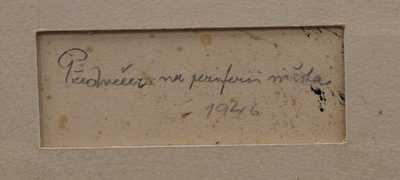 Předvečer na periferii města
1946